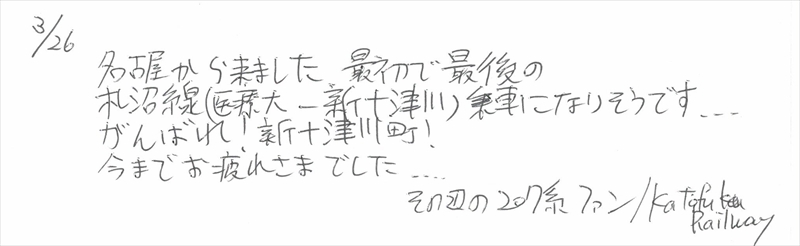 3/26
名古屋から来ました 最初で最後の
札沼線(医療大-新十津川)乗車になりそうです....
がんばれ!新十津川町!
今までお疲れさまでした....
その辺の207系ファン/Katofuku
Railway